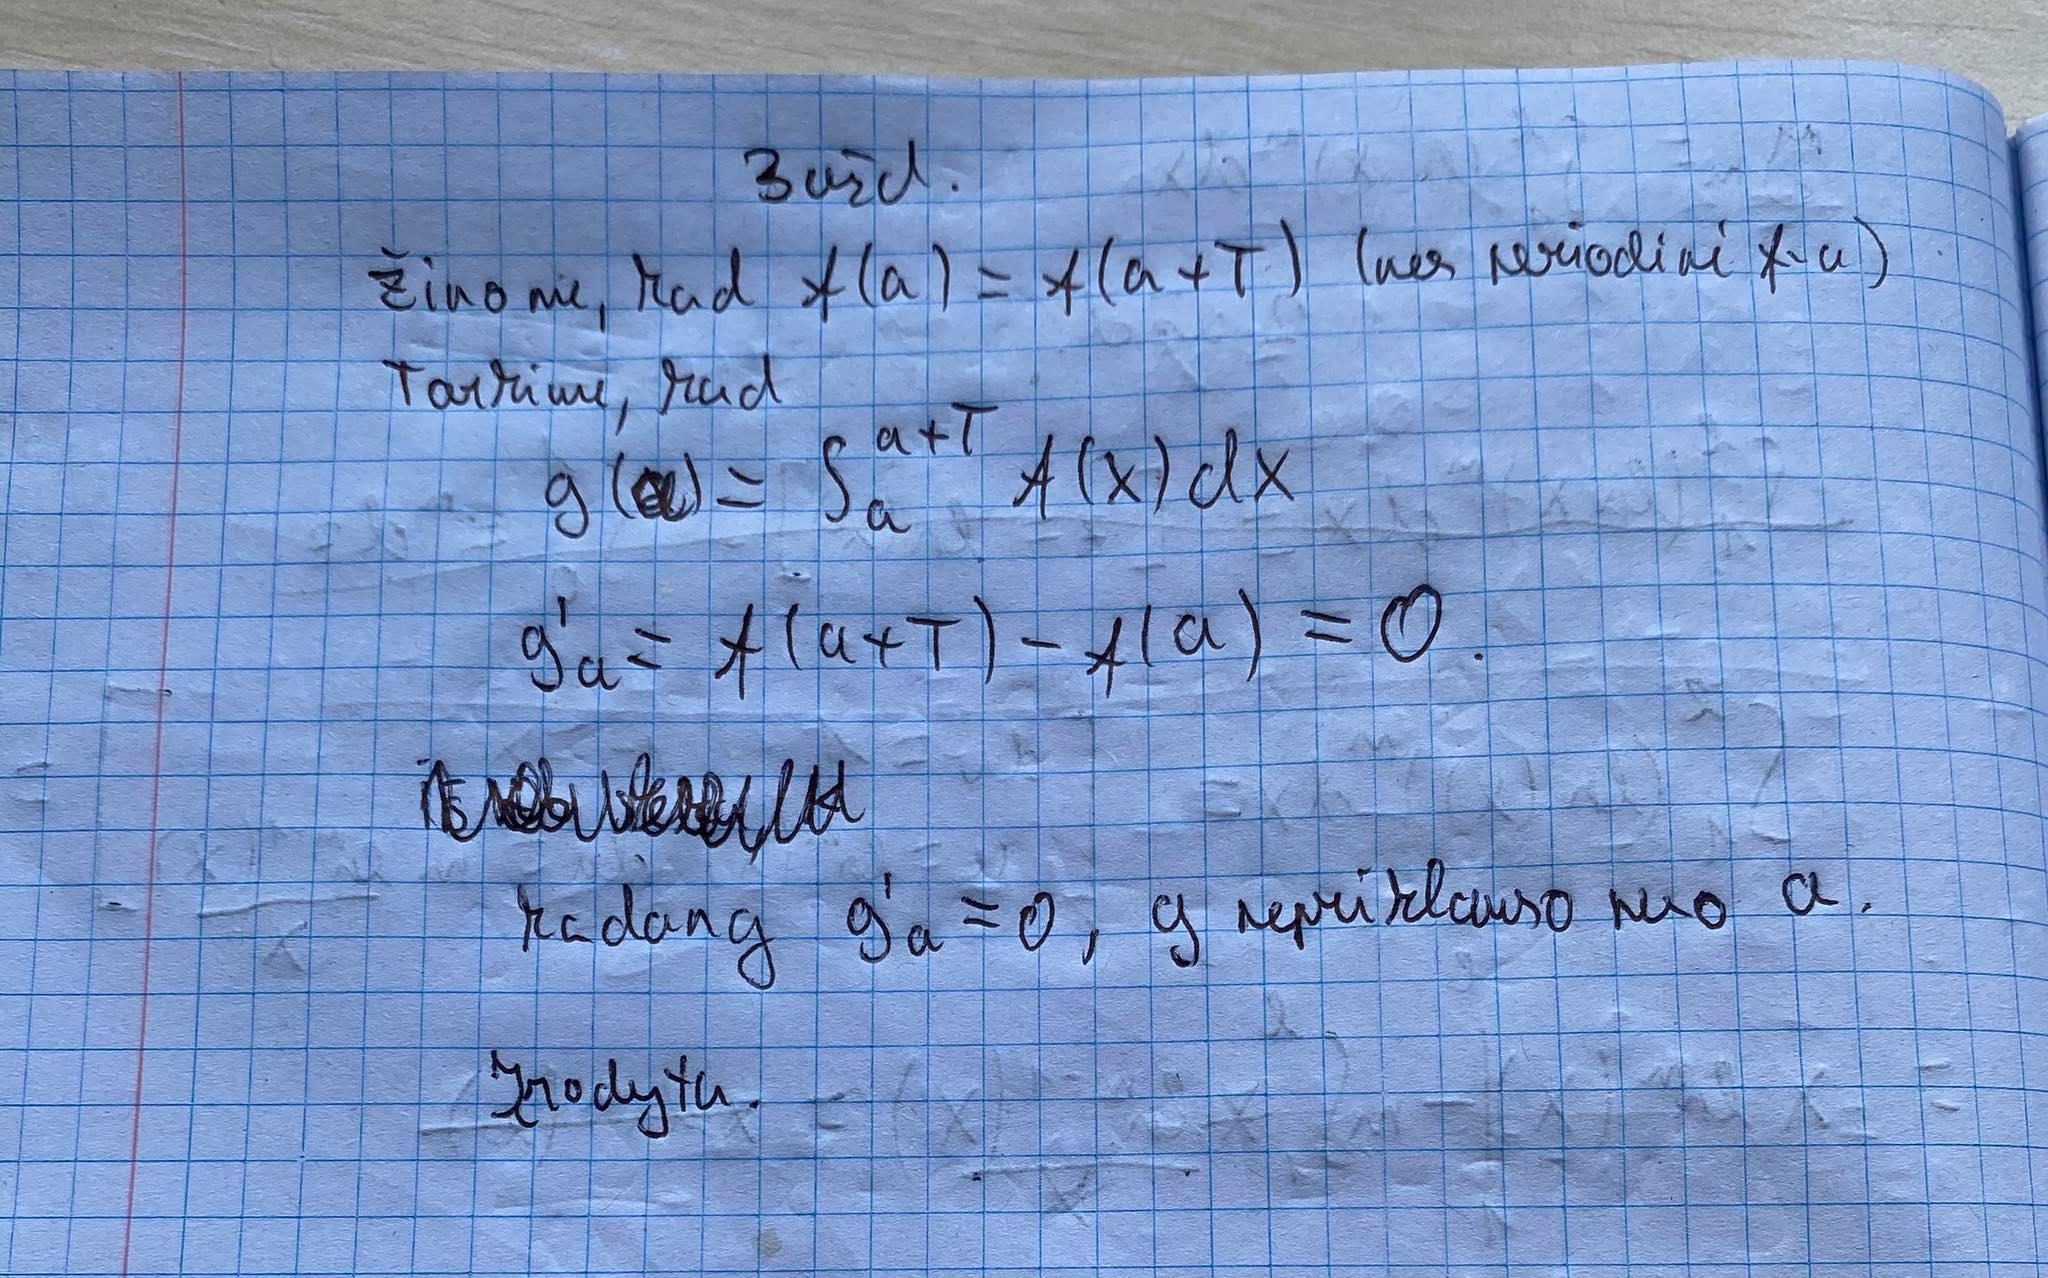 3 užd.
Žinome, kad f(a) = f(a+T) (nes periodinė f-a)
Tarkime, kad
g(a) = ∫ₐ^{a+T} f(x) dx
g'ₐ = f(a+T) - f(a) = 0.
kadang g'ₐ = 0, g nepriklauso nuo a.
Įrodyta.